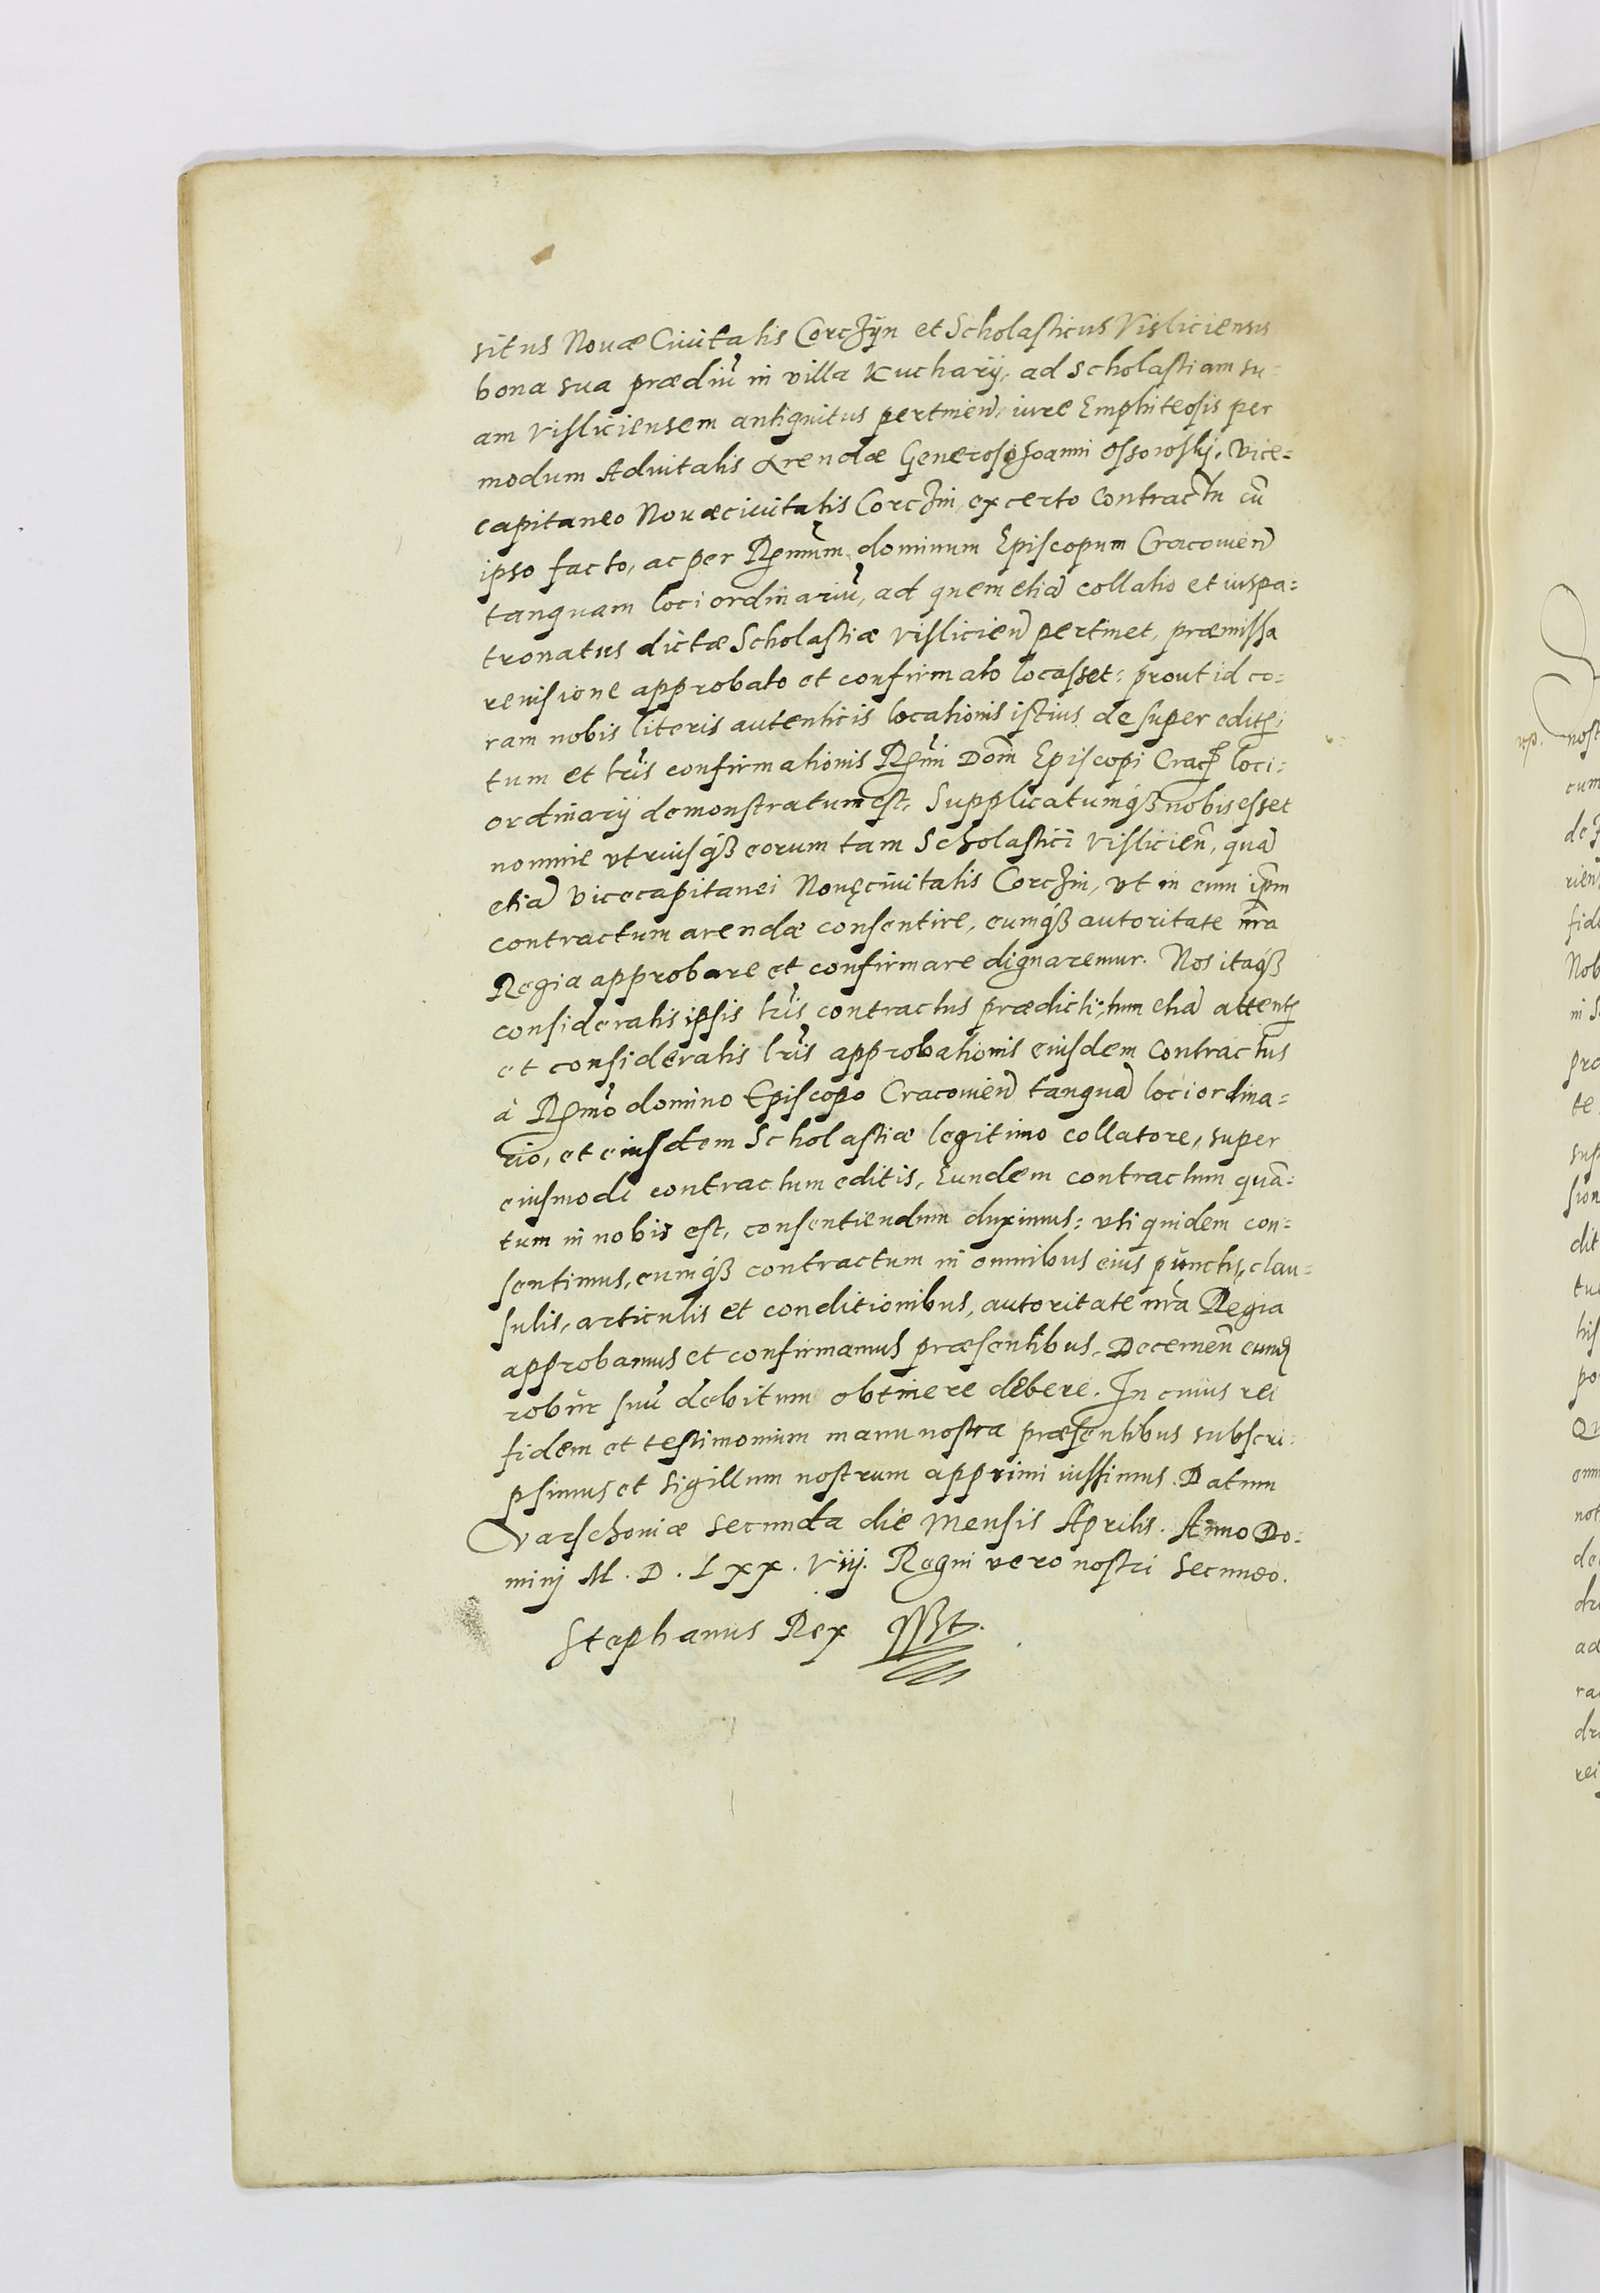 situs Nouæ Ciuitatis Corczÿn et Scholasticus Visliciensis
bona sua prædiũ in villa Kucharÿ, ad scholastiam su-
am Visliciensem antiquitus pertinen̄. iure Emphiteosis per
modum Aduitalis Arendæ Generoso Joanni Ossowskÿ, Vice-
capitaneo Nouæciuitatis Corczin, ex certo contractu cū
ipso facto, ac per Rm̄um dominum Episcopum Cracouien̄
tanquam loci ordinariũ, ad quem etiā collatio et iuspa-
tronatus dictæ Scholastiæ Vislicien̄ pertinet, præmissa
reuisione approbato et confirmato locasset: prout id co-
ram nobis literis autenticis locationis istius desuper editis,
tum et lr̄is confirmationis Rm̄i Dom̄ Episcopi Crac̄ loci-
ordinarÿ demonstratum est, Supplicatumq3 nobis esset
nomine vtriusq3 eorum tam Scholastici Vislicien̄, quā
etiā Vicecapitanei Nouęciuitatis Corczin, vt in eum ip̄m
contractum arendæ consentire, eumq3 autoritate nr̄a
Regia approbare et confirmare dignaremur. Nos itaq3
consideratis ipsis lr̄is contractus prædicti, tum etiā attentis
et consideratis lr̄is approbationis eiusdem contractus
à Rm̄o domino Episcopo Cracouien̄ tanquā loci ordina-
rio, et eiusdem Scholastiæ legitimo collatore, super
eiusmodi contractum editis, Eundem contractum quā-
tum in nobis est, consentiendum duximus: vti quidem con-
sentimus, eumq3 contractum in omnibus eius punctis, clau-
sulis, articulis et conditionibus, autoritate nr̄a Regia
approbamus et confirmamus præsentibus. Decernen̄ eund̄
robur suũ debitum obtinere debere. In cuius rei
fidem et testimonium manu nostra præsentibus subscri-
psimus et Sigillum nostrum apprimi iussimus. Datum
Varschouiæ secunda die Mensis Aprilis. Anno Do-
minj M. D. Lxx. viij. Regni vero nostri secundo.
Stephanus Rex